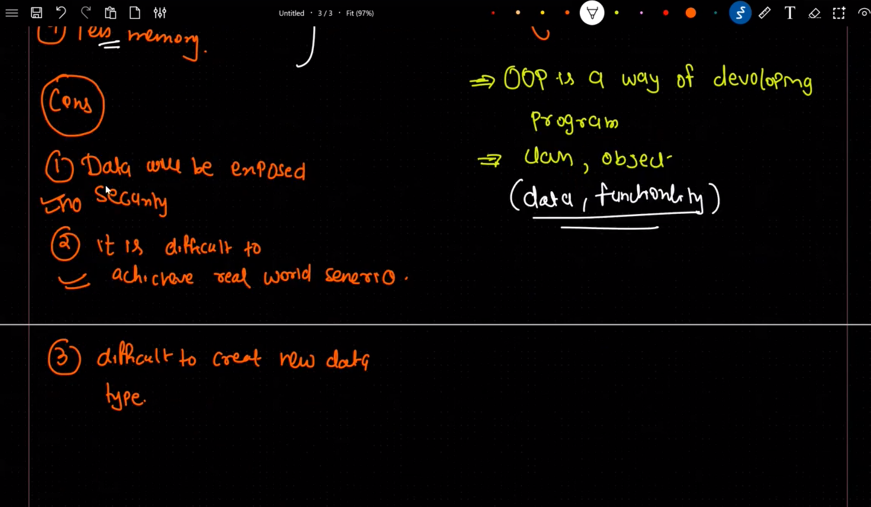 Untitled • 3 / 3 • Fit (97%)
T
less memory.
Cons
① Data will be exposed
no security
② it is difficult to
achicheve real world senerio.
③ difficult to creat new data
type.
⇒ OOP is a way of developing
program
⇒ class, object
(data, functionality)